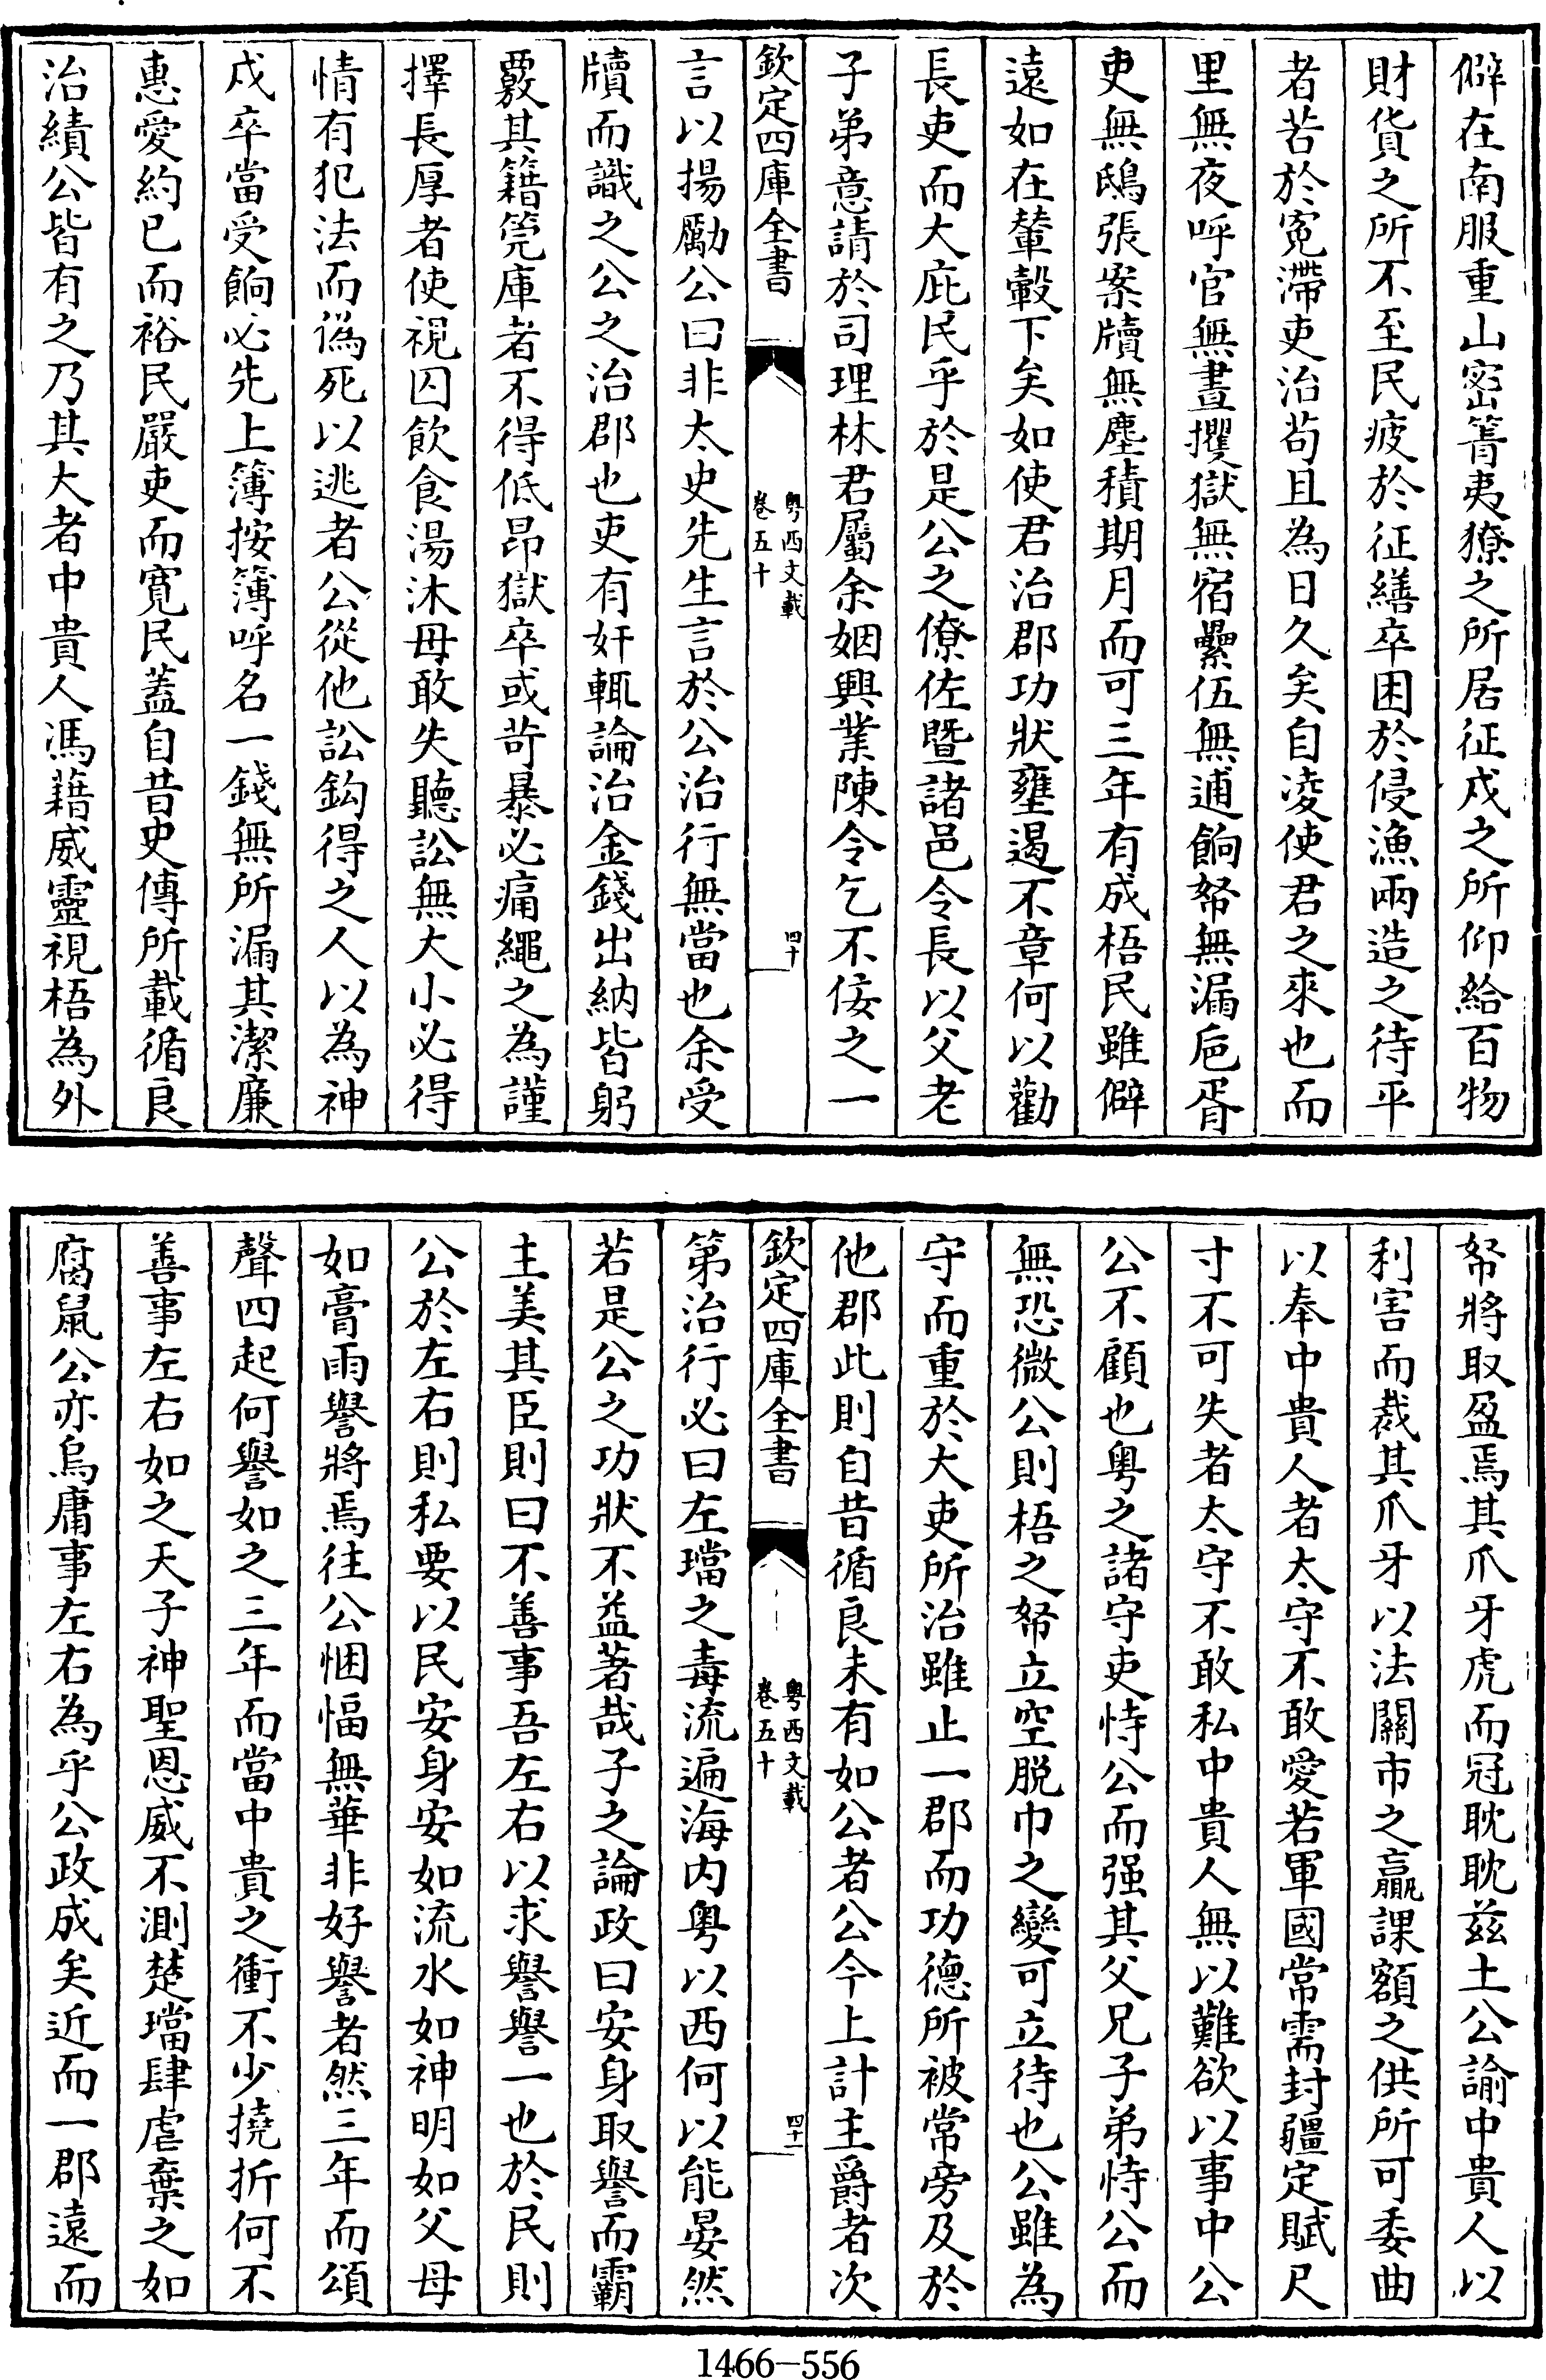 僻在南服重山密箐夷獠之所居征戍之所仰給百物
財貨之所不至民疲於征繕卒困於侵漁兩造之待平
者苦於寃滯吏治茍且為日久矣自凌使君之來也而
里無夜呼官無晝攫獄無宿纍伍無逋餉帑無漏巵胥
吏無鴟張案牘無塵積期月而可三年有成梧民雖僻
遠如在輦轂下矣如使君治郡功狀壅遏不章何以勸
長吏而大庇民乎於是公之僚佐暨諸邑令長以父老
子弟意請於司理林君屬余姻興業陳令乞不佞之一
欽定四庫全書
粤西文載
卷五十
四十
言以揚勵公曰非太史先生言於公治行無當也余受
牘而識之公之治郡也吏有奸輒論治金錢出納皆躬
覈其籍筦庫者不得低昂獄卒或苛暴必痛繩之為謹
擇長厚者使視囚飲食湯沐毋敢失聽訟無大小必得
情有犯法而偽死以逃者公從他訟鈎得之人以為神
戍卒當受餉必先上簿按簿呼名一錢無所漏其潔廉
惠愛約已而裕民嚴吏而寛民蓋自昔史傳所載循良
治績公皆有之乃其大者中貴人馮藉威靈視梧為外
帑將取盈焉其爪牙虎而冠耽耽兹土公諭中貴人以
利害而裁其爪牙以法關市之羸課額之供所可委曲
以奉中貴人者太守不敢愛若軍國常需封疆定賦尺
寸不可失者太守不敢私中貴人無以難欲以事中公
公不顧也粤之諸守吏恃公而强其父兄子弟恃公而
無恐微公則梧之帑立空脱巾之變可立待也公雖為
守而重於大吏所治雖止一郡而功德所被常旁及於
他郡此則自昔循良未有如公者公今上計主爵者次
欽定四庫全書
粤西文載
卷五十
四十一
第治行必曰左璫之毒流遍海内粤以西何以能晏然
若是公之功狀不益著哉子之論政曰安身取譽而霸
主美其臣則曰不善事吾左右以求譽譽一也於民則
公於左右則私要以民安身安如流水如神明如父母
如膏雨譽將焉往公悃愊無華非好譽者然三年而頌
聲四起何譽如之三年而當中貴之衝不少撓折何不
善事左右如之天子神聖恩威不測楚璫肆虐棄之如
腐鼠公亦烏庸事左右為乎公政成矣近而一郡遠而
1466-556